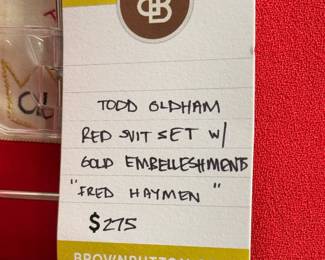 TODD OLDHAM
RED SUIT SET W/
GOLD EMBELLESHMENTS
"FRED HAYMEN"
$275